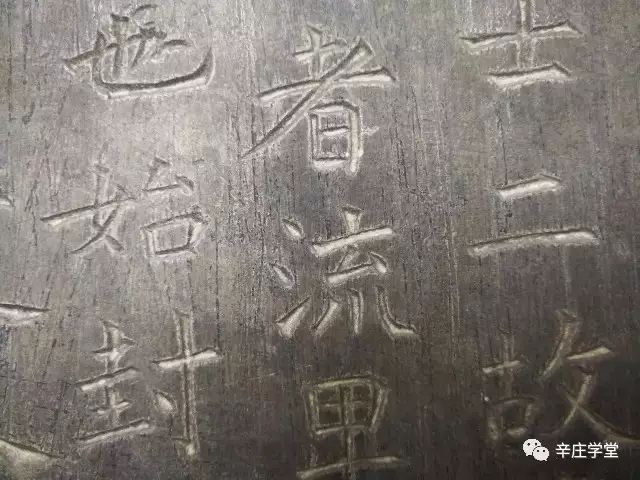 士二故
者流里
也始封
辛庄学堂